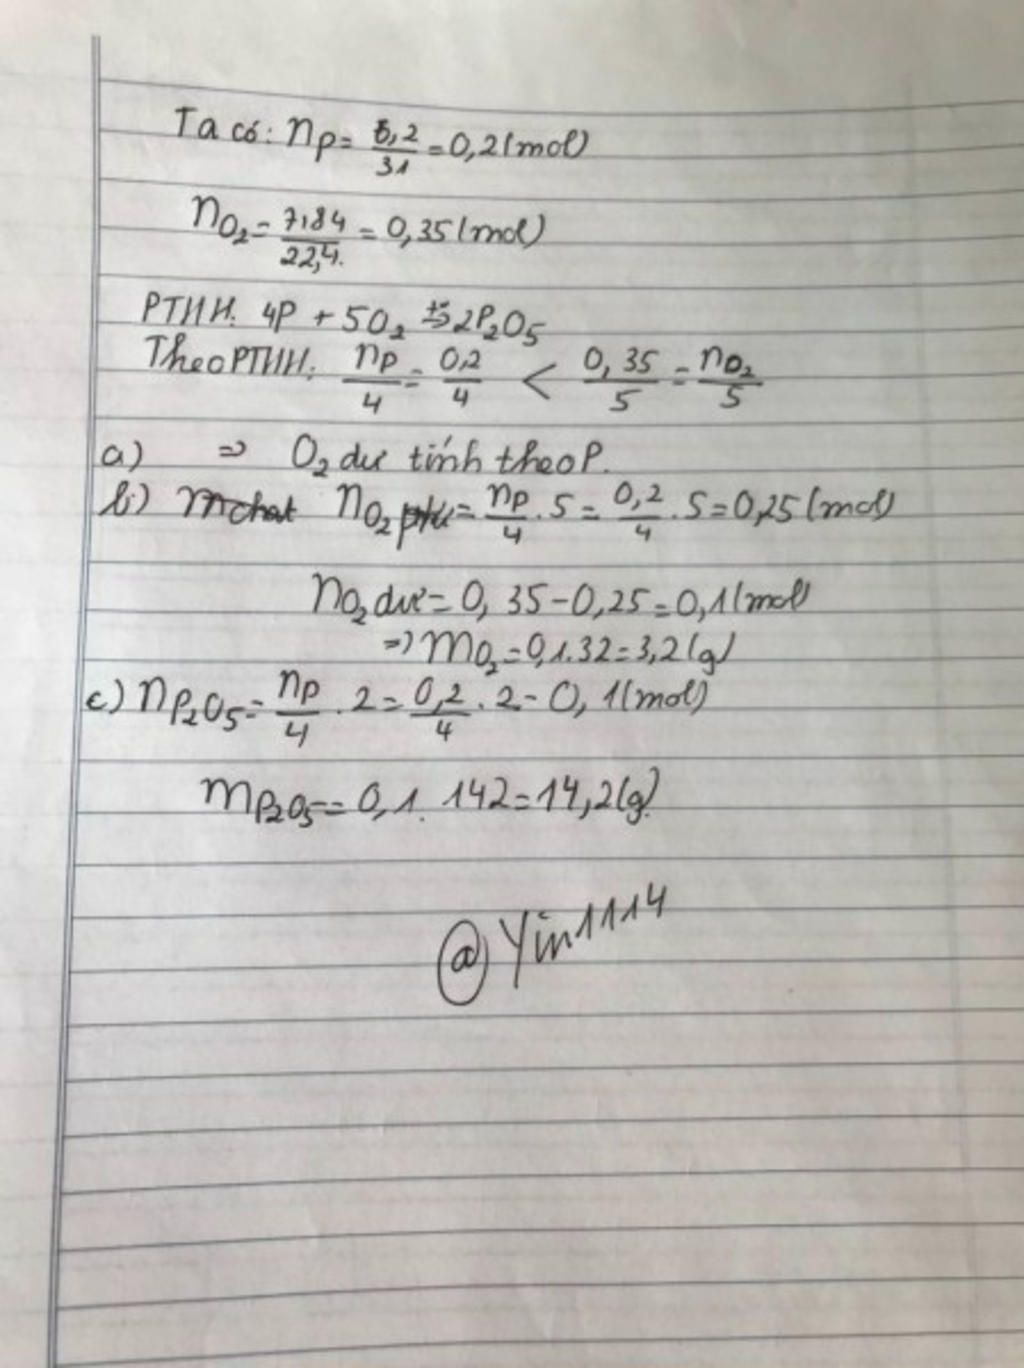 Ta có: nP = 6,2/31 = 0,2 (mol)
nO₂ = 7,84/22,4 = 0,35 (mol)
PTHH: 4P + 5O₂ t°→ 2P₂O₅
Theo PTHH: nP/4 = 0,2/4 < 0,35/5 = nO₂/5
a) ⇒ O₂ dư tính theo P.
b) nO₂ = nP/4 . 5 = 0,2/4 . 5 = 0,25 (mol)
nO₂ dư = 0,35 - 0,25 = 0,1 (mol)
=> mO₂ = 0,1.32 = 3,2 (g)
c) nP₂O₅ = nP/4 . 2 = 0,2/4 . 2 = 0,1 (mol)
mP₂O₅ = 0,1. 142 = 14,2 (g)
@Yin1114